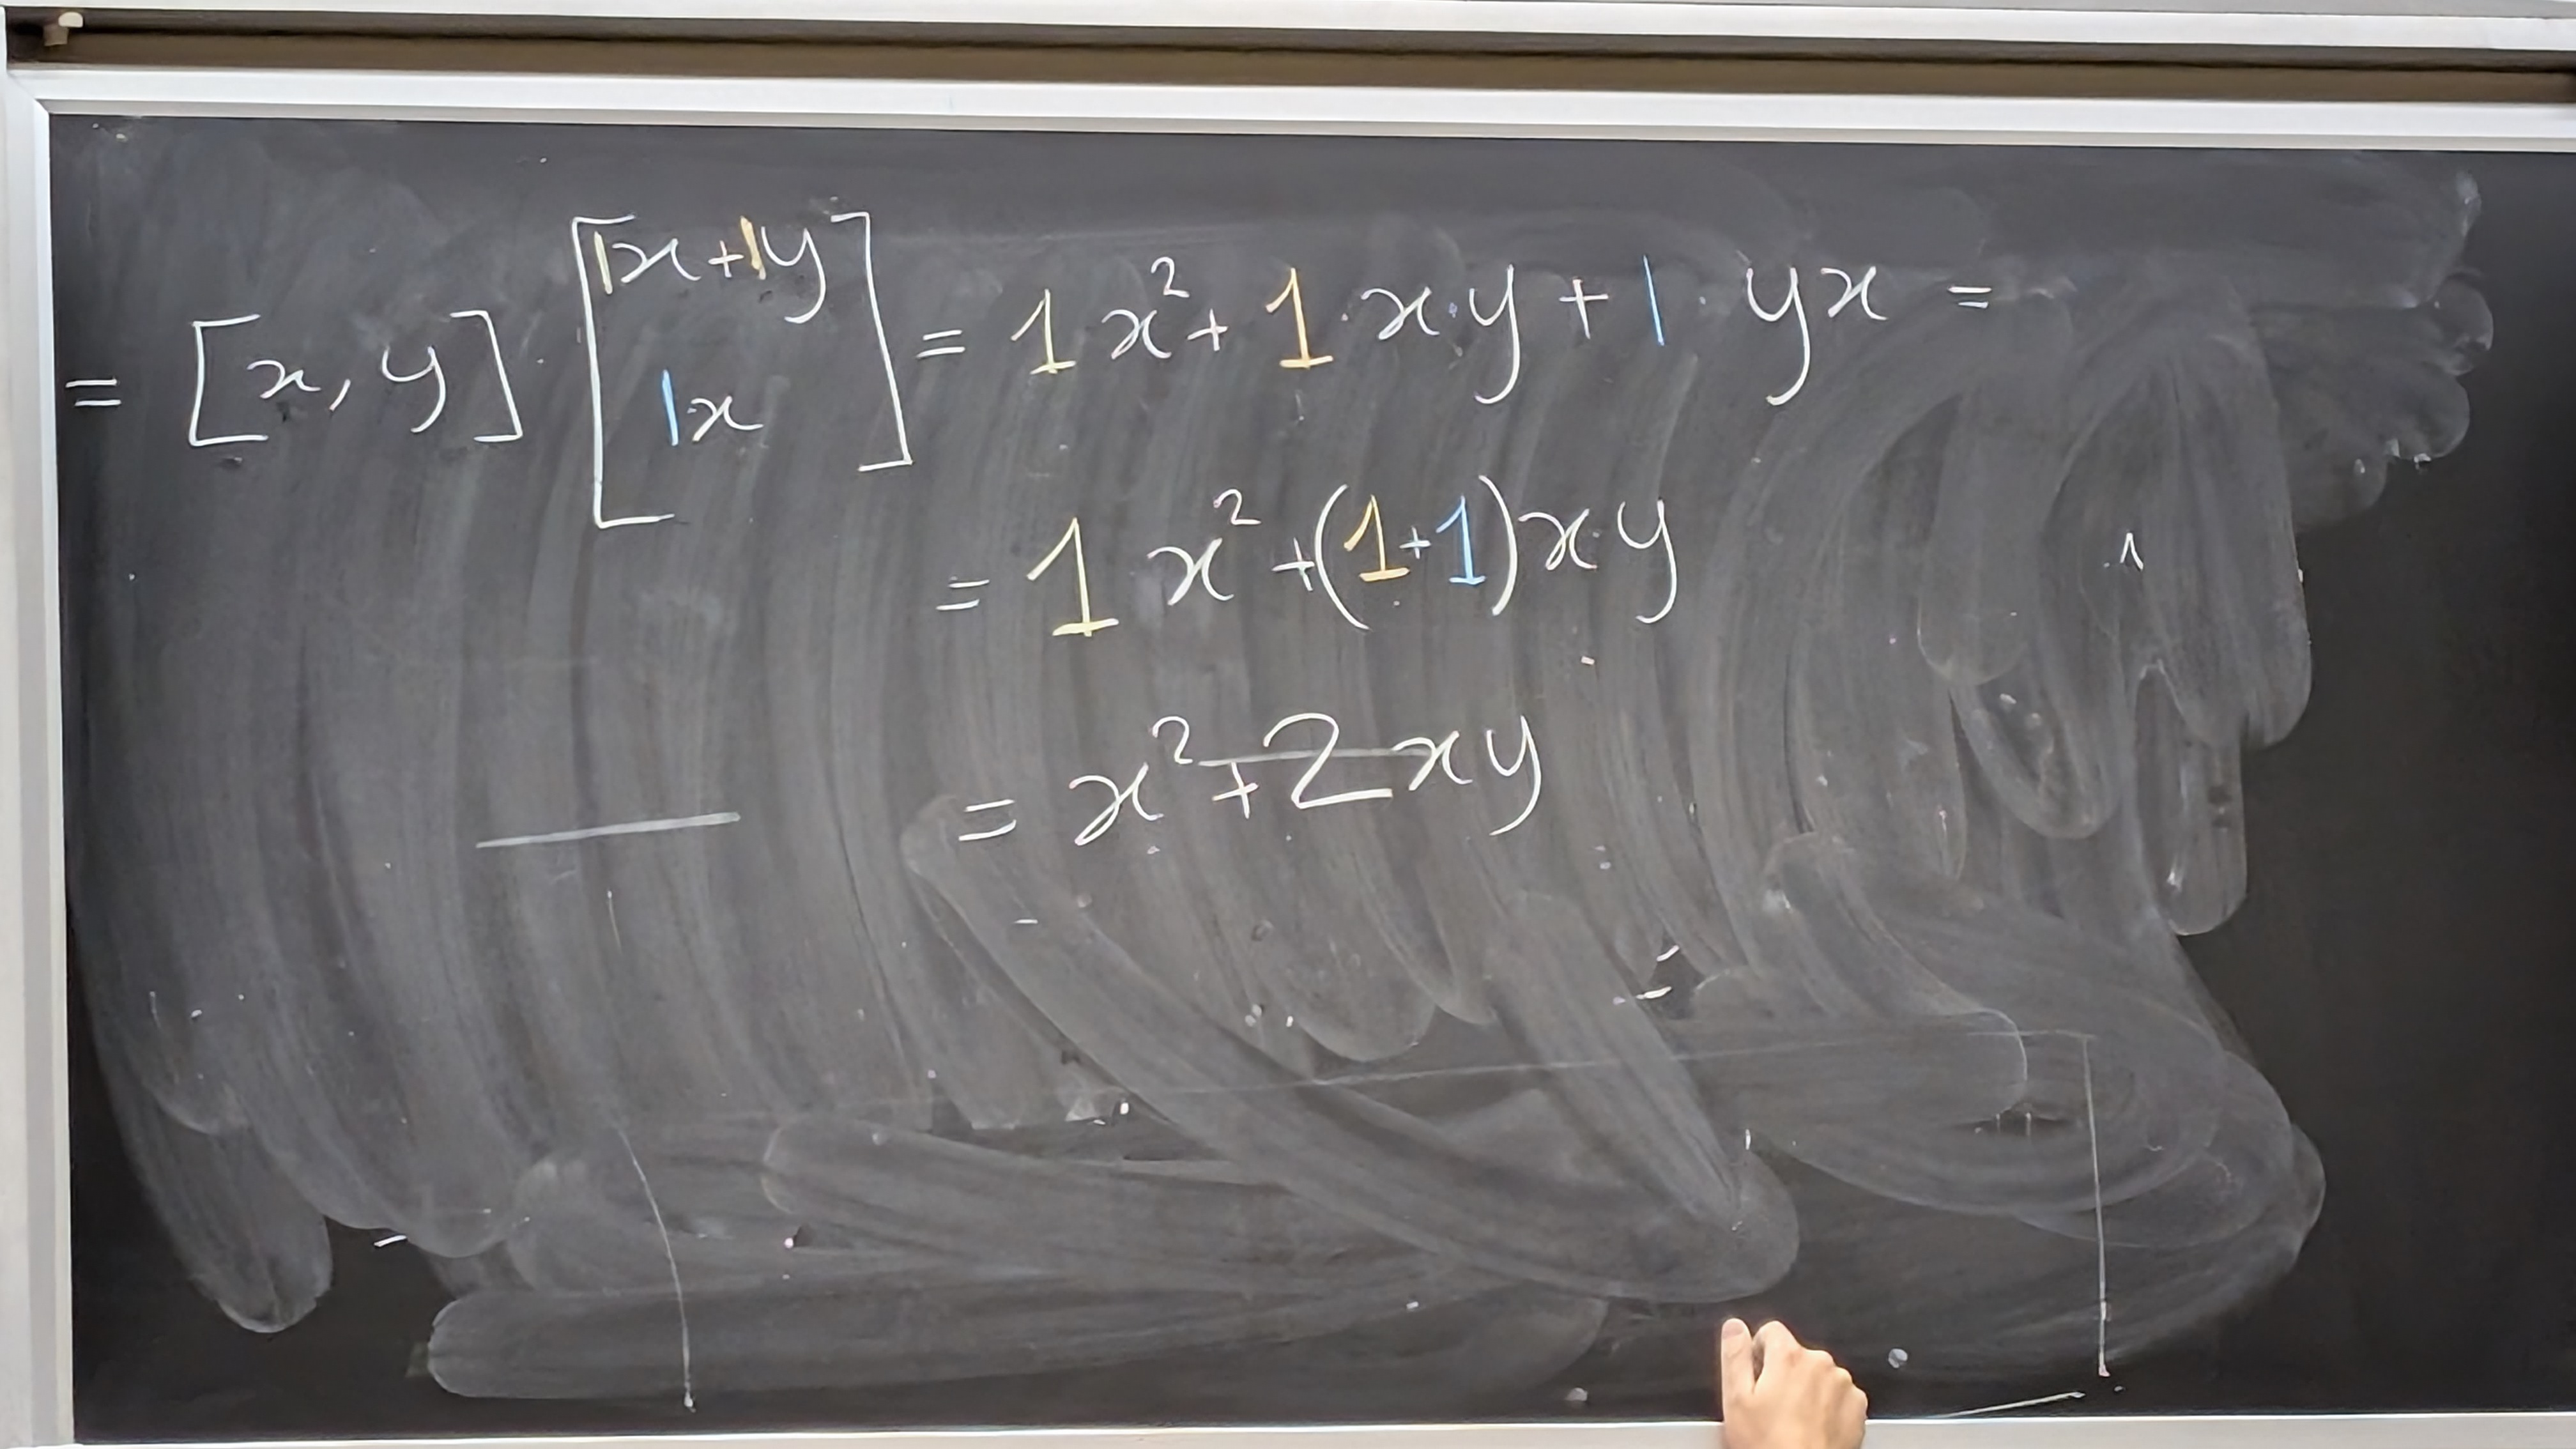 = [x, y] · [1x + 1y
1x] = 1x² + 1 · x · y + 1 · yx =
= 1 x² + (1 + 1) x · y
= x² + 2xy